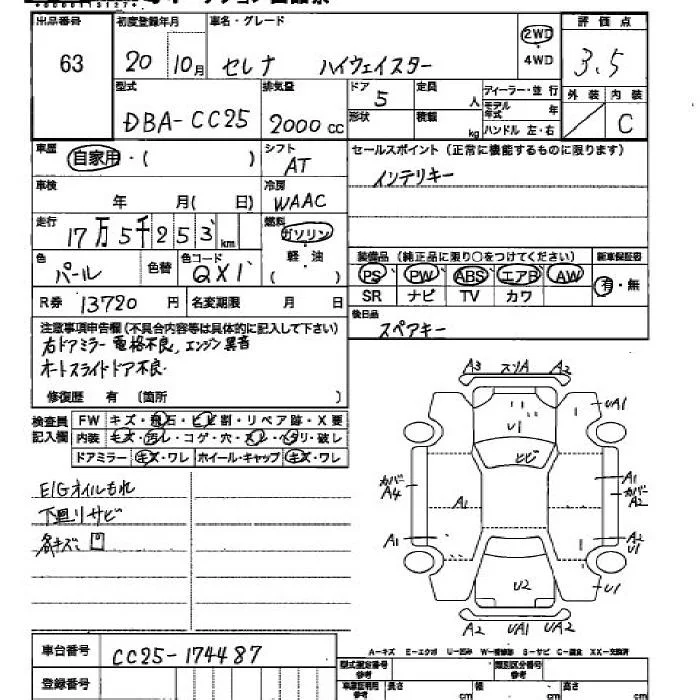 出品番号 初度登録年月 車名・グレード 評価点
63 20 10月 セレナ ハイウェイスター 2WD 3.5
4WD
型式 排気量 ドア 定員 ディーラー・並行 外装 内装
5 人 モデル年式 年
DBA-CC25 2000cc 形状 積載 kg ハンドル 左・右 C
車歴 自家用・( シフト AT セールスポイント (正常に機能するものに限ります)
インテリキー
車検 年 月( 日) 冷房 WAAC
走行 17万5千253km 燃料 ガソリン
軽・油
装備品 (純正品に限り○をつけてください) 新車保証書
色 パール 色替 色コード QX1 ( ) PS PW ABS エアB AW 有・無
SR ナビ TV カワ
R券 13720円 名変期限 月 日
後日品 スペアキー
注意事項申告欄 (不具合内容等は具体的に記入して下さい)
右ドアミラー 電格不良, エンジン異音
オートスライドドア不良
修復歴 有 (箇所 )
検査員記入欄 FW キズ・飛石・ヒビ割・リペア跡・X要
内装 キズ・汚レ・コゲ・穴・スレ・ヘタリ・破レ
ドアミラー キズ・ワレ ホイール・キャップ キズ・ワレ
E/Gオイルもれ
下回りサビ
各キズ
A3 スリA A2
UA1
U1
ヒビ
カバー A4 A1 A1 カバー A2
A1 A2 U1
U2 U1
A2 UA1 UA2
車台番号 CC25-174487
A-キズ E-エクボ U-凹み W-補修跡 S-サビ C-腐食 XX-交換済
登録番号 型式指定番号 参考 類別区分番号 参考
長さ cm 幅 cm 高さ cm